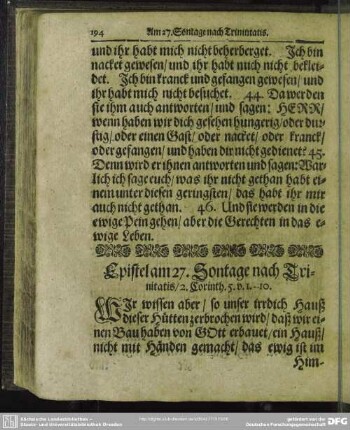 194 Am 27. Sontage nach Trinitatis.
und ihr habt mich nicht beherberget. Ich bin
nacket gewesen/ und ihr habt mich nicht beklei-
det. Ich bin kranck und gefangen gewesen/ und
ihr habt mich nicht besuchet. 44. Da werden
sie ihm auch antworten/ und sagen: HERR/
wenn haben wir dich gesehen hungerig/ oder dur-
stig/ oder einen Gast/ oder nacket/ oder kranck/
oder gefangen/ und haben dir nicht gedienet? 45.
Denn wird er ihnen antworten und sagen: War-
lich ich sage euch/ was ihr nicht gethan habt ei-
nem unter diesen geringsten/ das habt ihr mir
auch nicht gethan. 46. Und sie werden in die
ewige Pein gehen/ aber die Gerechten in das e-
wige Leben.
Epistel am 27. Sontage nach Tri-
nitatis/ 2. Corinth. 5. v. 1.-10.
WIr wissen aber/ so unser irrdich Hauß
dieser Hütten zerbrochen wird/ daß wir ei-
nen Bau haben von GOtt erbauet/ ein Hauß/
nicht mit Händen gemacht/ das ewig ist im
Him-
Sächsische Landesbibliothek -
Staats- und Universitätsbibliothek Dresden
gefördert von der
Deutschen Forschungsgemeinschaft
DFG